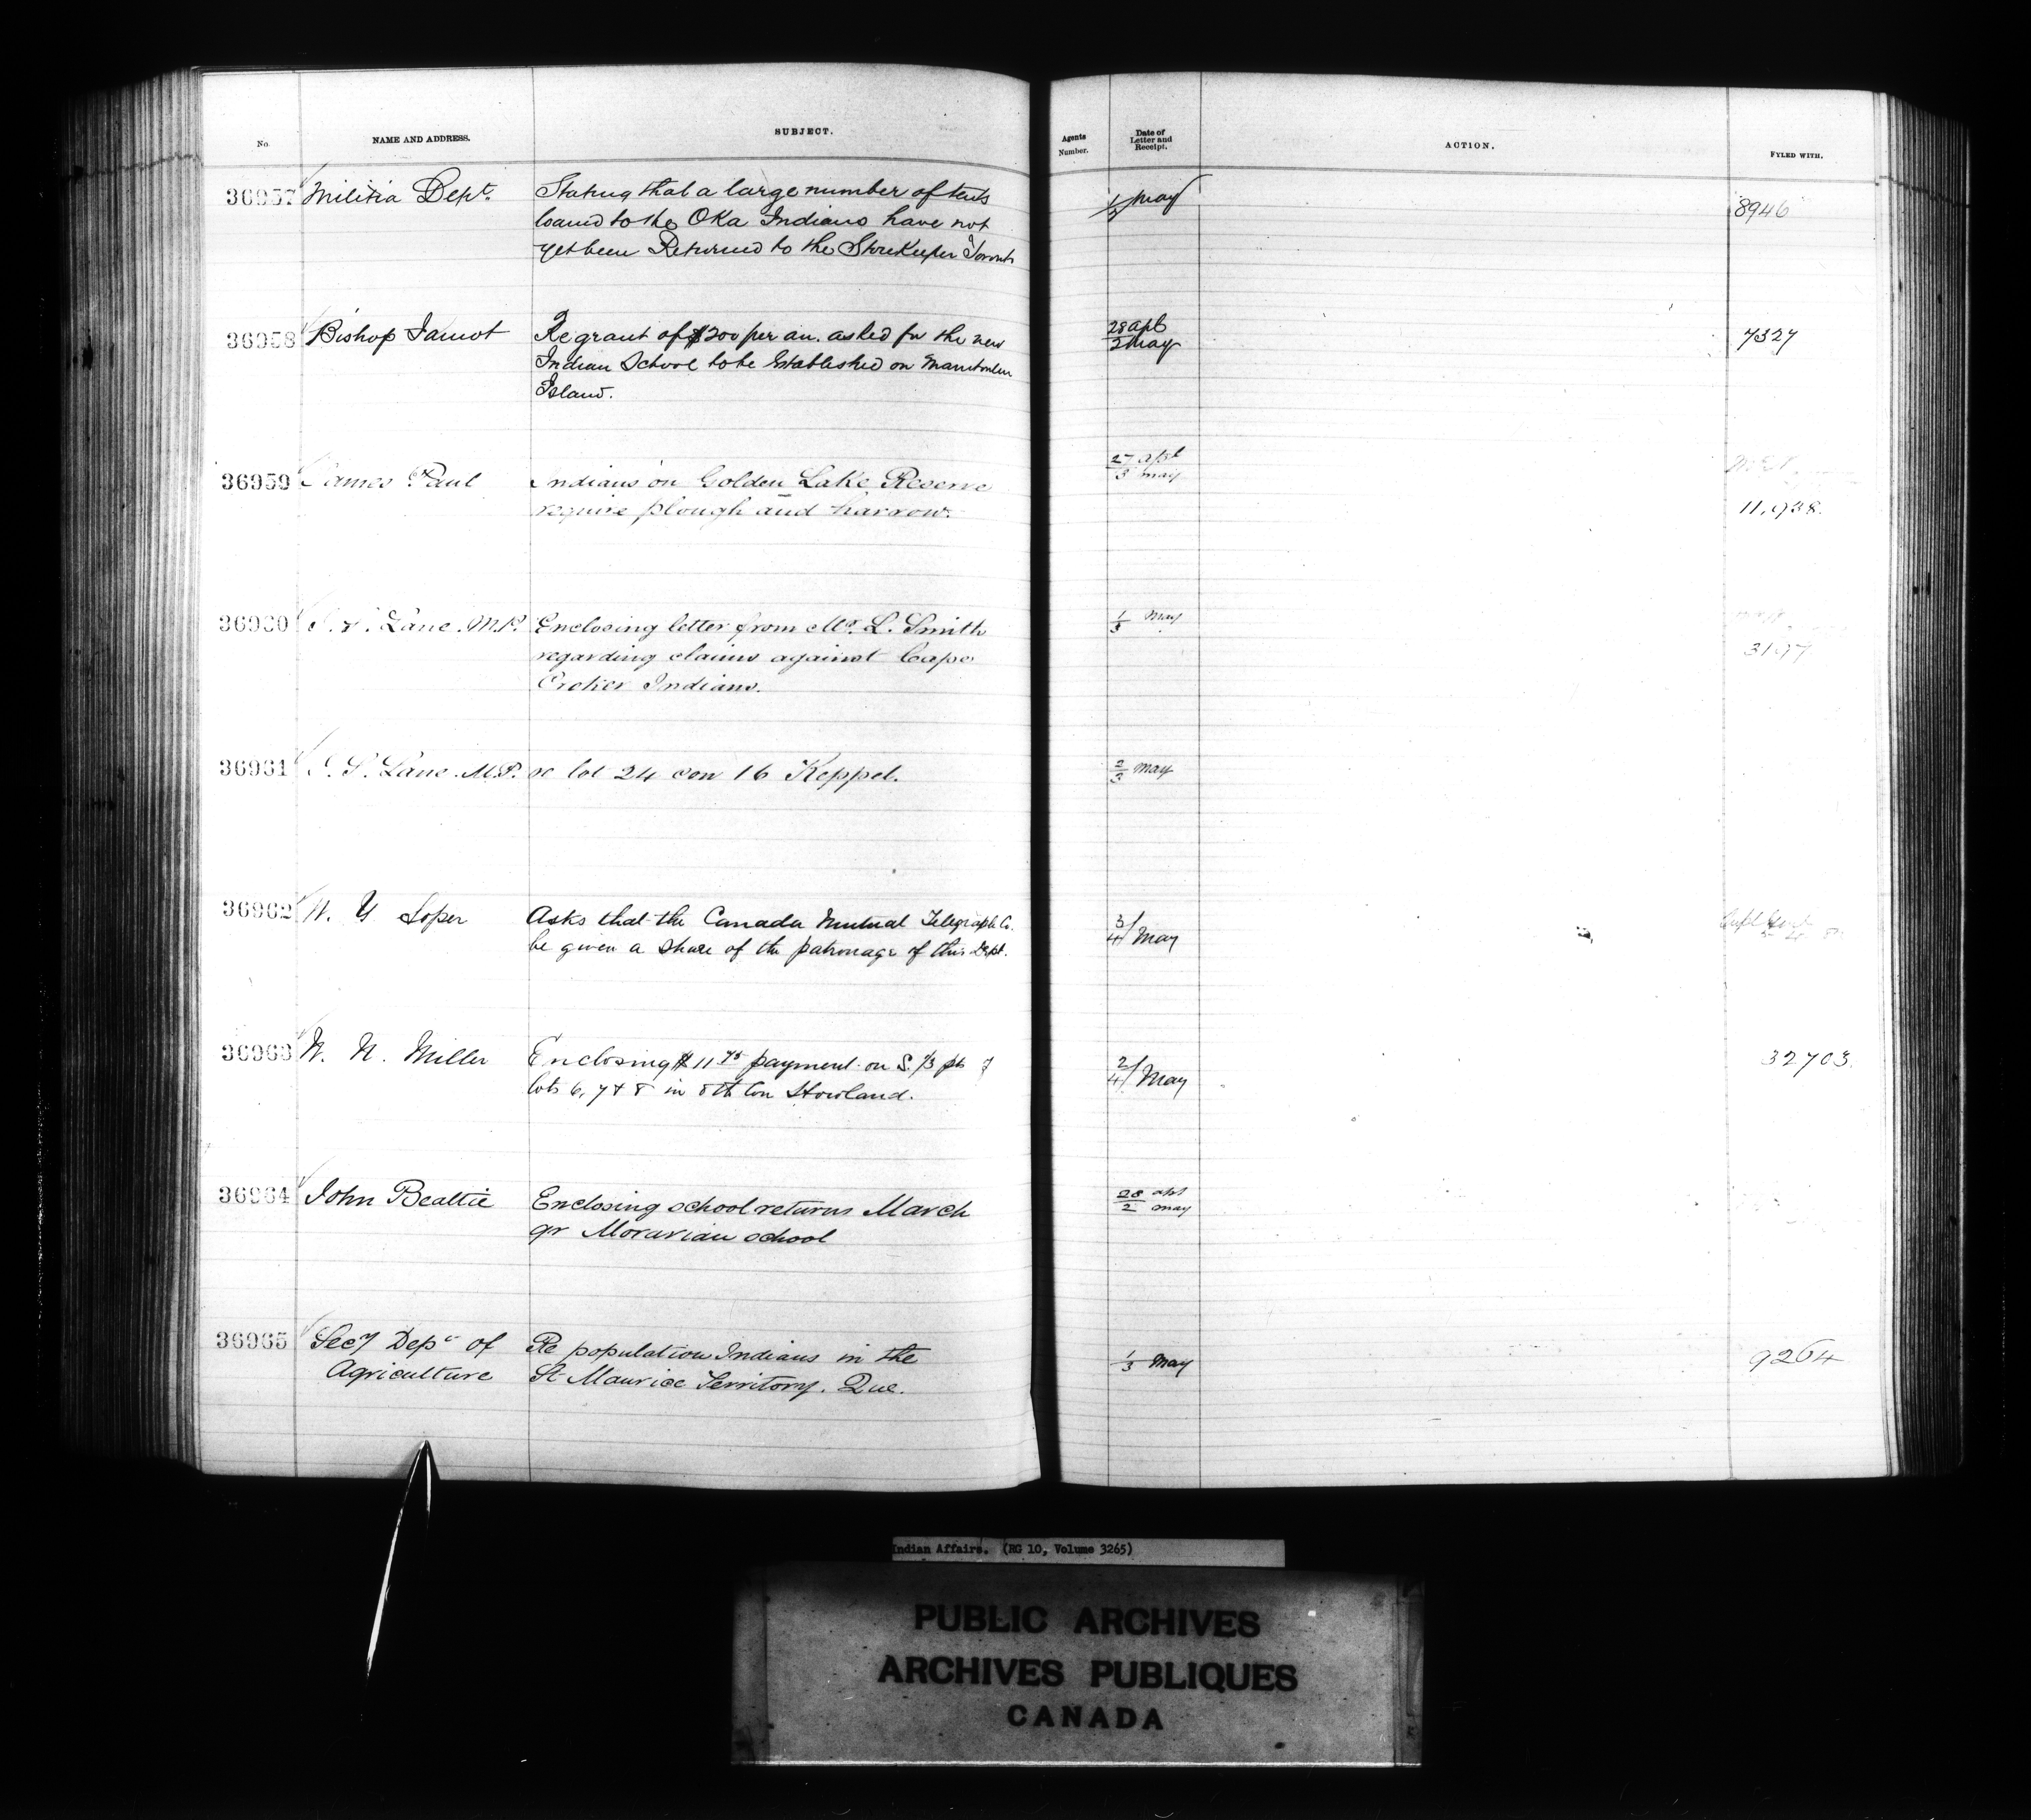 No. NAME AND ADDRESS. SUBJECT. Agents Number. Date of Letter and Receipt. ACTION. FYLED WITH.
36957 Militia Dept. Stating that a large number of tents 1/3 May 8946
loaned to the Oka Indians have not
yet been Returned to the Storekeeper Toronto
36958 Bishop Jamot Re grant of $200 per an. asked for the new 28 apl 7327
Indian School to be Established on Manitoulin 2 May
Island.
36959 James Paul Indians on Golden Lake Reserve 27 apl
require plough and harrow. 3 may 11,938.
36960 Lane. M.P. Enclosing letter from Mr. L. Smith 1/3 May
regarding claims against Cape 3197
Croker Indians.
36961 Lane. M.P. re lot 24 con 16 Keppel. 2/3 May
36962 W. Y. Soper Asks that the Canada Mutual Telegraph Co. 3/4 May
be given a share of the patronage of this Dept.
36963 W. N. Miller Enclosing $11 75 payment on S. 1/3 pts of 2/4 May 32703.
lots 6, 7 & 8 in 8th Con Howland.
36964 John Beattie Enclosing school returns March 28 apl
qr Moravian school 2 may
36965 Secy Dept of Re population Indians in the 1/3 May 9264
Agriculture St Maurice Territory. Que.
Indian Affairs. (RG 10, Volume 3265)
PUBLIC ARCHIVES
ARCHIVES PUBLIQUES
CANADA